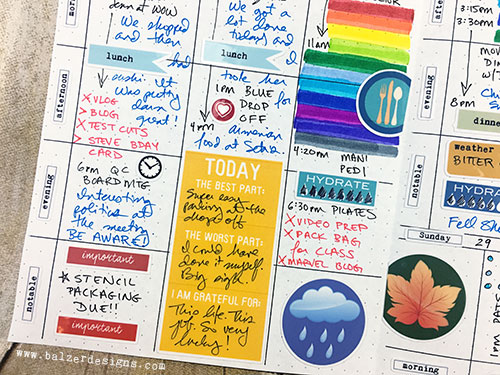 dent at WOW
We skyped
and then
lunch
And
sushi. It
was pretty
darn
great!
afternoon
X VLOG
X BLOG
X TEST CUTS
> STEVE BDAY
CARD
6PM QC
BOARD MTG
Interesting
politics at
the meeting.
BE AWARE!
evening
important
* STENCIL
PACKAGING
DUE!!
important
notable
We got a
lot done
today! and
lunch
I
took her
1PM BLUE for
DROP
OFF
4PM
Armenian
food at Setas.
TODAY
THE BEST PART:
Super easy
parking at the
drop off
THE WORST PART:
I could have
done it myself.
Big sigh!
I AM GRATEFUL FOR:
This life. This
job. So very
lucky!
11am
4:20PM MANI
PEDI
HYDRATE
6:30PM PILATES
X VIDEO PREP
X PACK BAG
for CLASS
X MARVEL BLOG
3:15PM
3:30PM
evening
8pm
dinne
weather
BITTER
notable
HYDR
Fell Sh
Sunday
29
morning
www.balzerdesigns.com